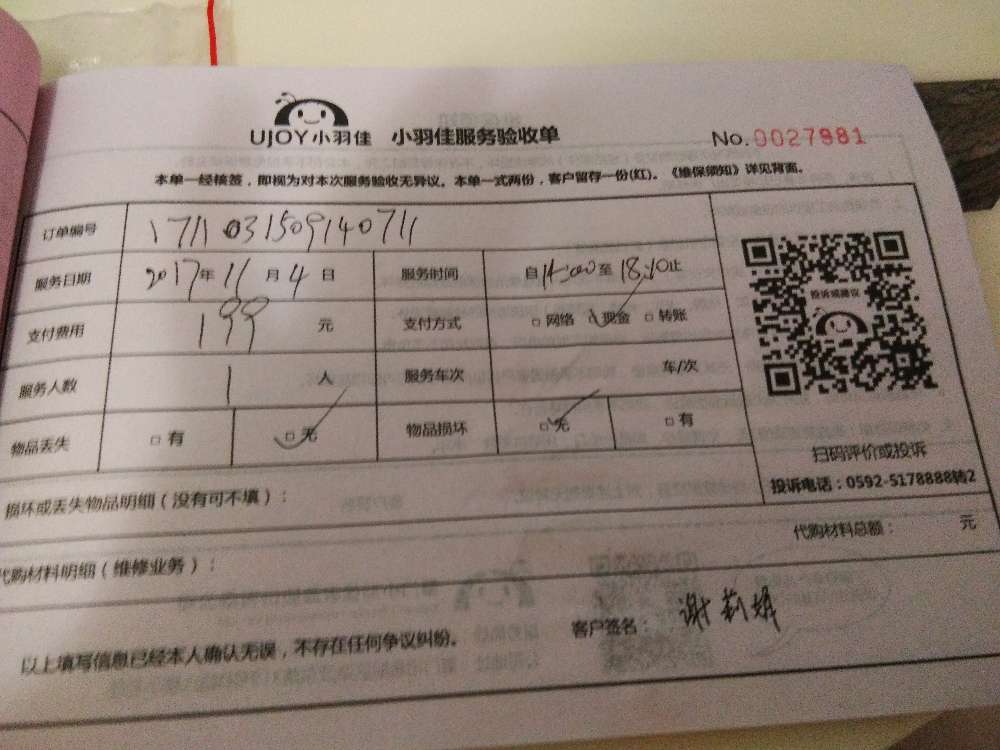 UJOY小羽佳 小羽佳服务验收单 No.0027981
本单一经核签，即视为对本次服务验收无异议。本单一式两份，客户留存一份(红)。《维保须知》详见背面。
订单编号 1711031509140711
服务日期 2017年11月4日 服务时间 自14:00至18:10止
支付费用 199元 支付方式 □网络 √现金 □转账
服务人数 1人 服务车次 车/次
物品丢失 □有 □√无 物品损坏 □√无 □有
投诉或建议
扫码评价或投诉
投诉电话：0592-5178888转2
损坏或丢失物品明细（没有可不填）：
代购材料总额： 元
代购材料明细（维修业务）：
以上填写信息已经本人确认无误，不存在任何争议纠纷。 客户签名：谢莉